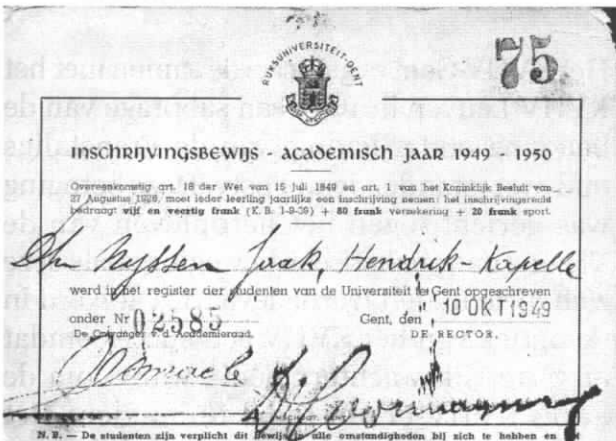 RIJKSUNIVERSITEIT-GENT
75
INSCHRIJVINGSBEWIJS - ACADEMISCH JAAR 1949 - 1950
Overeenkomstig art. 18 der Wet van 15 Juli 1849 en art. 1 van het Koninklijk Besluit van
27 Augustus 1926, moet ieder leerling jaarlijks een inschrijving nemen; het inschrijvingsrecht
bedraagt vijf en veertig frank (K. B. 1-9-39) + 80 frank verzekering + 20 frank sport.
Nyssen Jaak, Hendrik - Kapelle
werd in het register der studenten van de Universiteit te Gent opgeschreven
onder Nr 02585 Gent, den 10 OKT 1949
De Ontvanger v. d. Academieraad. DE RECTOR
N. B. — De studenten zijn verplicht dit bewijs in alle omstandigheden bij zich te hebben en